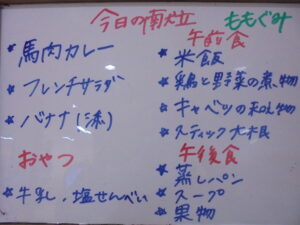 今日の献立 ももぐみ
★ 馬肉カレー
★ フレンチサラダ
★ バナナ(添)
おやつ
★ 牛乳・塩せんべい
午前食
★ 米飯
★ 鶏と野菜の煮物
★ キャベツの和え物
★ スティック大根
午後食
★ 蒸しパン
★ スープ
★ 果物